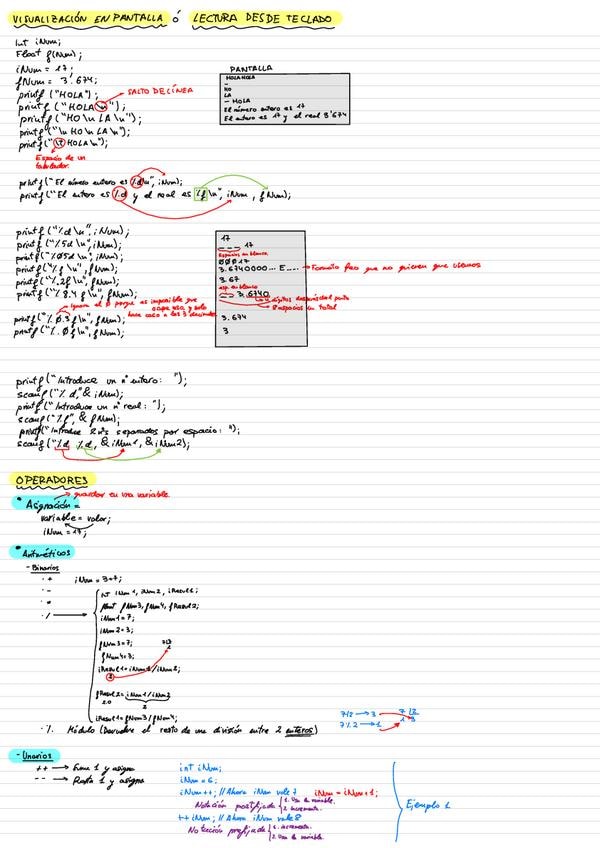 VISUALIZACIÓN EN PANTALLA ó LECTURA DESDE TECLADO
int iNum;
Float f(Num);
iNum = 17;
fNum = 3'674;
printf ("HOLA");
printf ("HOLA\n");
SALTO DE LÍNEA
printf ("HO\n LA\n");
printf ("\n HO\n LA\n");
printf ("\t HOLA\n");
Espacio de un
tabulador.
PANTALLA
HOLAHOLA
-
HO
LA
- HOLA
El número entero es 17
El entero es 17 y el real 3'674
printf ("El número entero es %d\n", iNum);
printf ("El entero es %d y el real es %f \n", iNum, fNum);
printf ("%d\n", iNum);
printf ("%5d\n", iNum);
printf ("%05d\n", iNum);
printf ("%f \n", fNum);
printf ("%.2f\n", fNum);
printf ("%8.4 f \n", fNum);
Ignora el 0 porque es imposible que
ocupe eso, y solo
hace caso a los 3 decimales
printf ("%0.3f\n", fNum);
printf ("%.0f\n", fNum);
17
--- 17
Espacios en blanco
00017
3.6740000... E....
Formato feo que no quieren que usemos
3.67
esp. en blanco
-- 3.6740
8 espacios en total
3.674
3
printf ("Introduce un nº entero: ");
scanf ("%d", & iNum);
printf ("Introduce un nº real: ");
scanf ("%f", & fNum);
printf ("Introduce 2 nºs separados por espacio: ");
scanf ("%d %d, & iNum1, & iNum2);
OPERADORES
Asignación =
guardar en una variable.
variable = valor;
iNum = 17;
Aritméticos
- Binarios
+ iNum = 3+7;
-
*
/
int iNum1, iNum2, iResul1;
float fNum3, fNum4, fResul2;
iNum1 = 7;
iNum2 = 3;
fNum3 = 7;
fNum4 = 3;
iResul1 = iNum1/iNum2;
2
fResul2 = iNum1/iNum2
2.0 2
iResul1 = fNum3/fNum4;
% Módulo (Devuelve el resto de una división entre 2 enteros)
7/2 → 3
7%2 → 1
7 |2
1 3
- Unarios
++ → Suma 1 y asigna
-- → Resta 1 y asigna
int iNum;
iNum = 6;
iNum++; // Ahora iNum vale 7 iNum = iNum+1;
Notación postfijada 1. Usa la variable.
2. incrementa.
++iNum; // Ahora iNum vale 8
Notación prefijada 1. incrementa.
2. Usa la variable.
Ejemplo 1